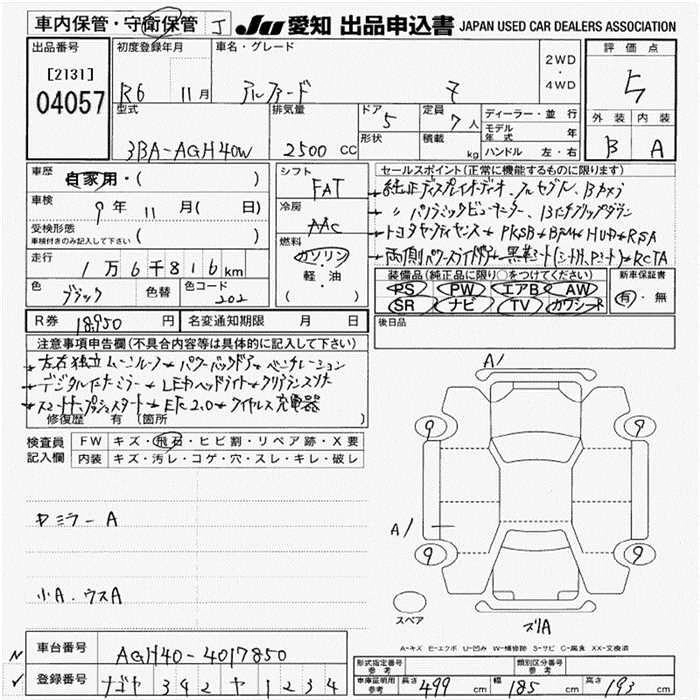 車内保管・守衛保管 J JU 愛知 出品申込書 JAPAN USED CAR DEALERS ASSOCIATION
出品番号 初度登録年月 車名・グレード 評価点
[2131] R6 11月 アルファード Z 2WD・4WD 5
04057 型式 排気量 ドア 定員 ディーラー・並行 外装 内装
3BA-AGH40W 2500 CC 5 7人 モデル年式 年 B A
形状 積載 kg ハンドル 左・右
車歴 自家用・( ) シフト FAT セールスポイント(正常に機能するものに限ります)
車検 9年 11月( 日) 冷房 AAC 純正ディスプレイオーディオ、フルセグTV、Bカメラ
受検形態 車検付きのみ記入して下さい ( ) 〃 パノラミックビューモニター、
燃料 ガソリン・軽・油 ( ) トヨタセーフティセンス PKSB BSM HUD RSA
走行 1万6千816km 両側パワースライドドア 黒革シート RCTA
色 ブラック 色替 色コード 202 装備品(純正品に限り○をつけてください) 新車保証書
PS PW エアB AW 有・無
SR ナビ TV カワシート
R券 18950円 名変通知期限 月 日 後日品
注意事項申告欄(不具合内容等は具体的に記入して下さい)
左右独立ムーンルーフ パワーバックドア ベンチレーション
デジタルインナーミラー LEDヘッドライト クリアランスソナー
スマートキー プッシュスタート ETC2.0 ワイヤレス充電器
修復歴 有 (箇所 )
検査員記入欄 FW キズ・飛石・ヒビ割・リペア跡・X要
内装 キズ・汚レ・コゲ・穴・スレ・キレ・破レ
A1
9 9
ミラーA A1
9 9
小A.ウスA
スペア ズリA
A-キズ E-エクボ U-凹み W-補修跡 S-サビ C-腐食 XX-交換済
N 車台番号 AGH40-4017850 形式指定番号 参考 類別区分番号 参考
✓ 登録番号 ナゴヤ 342 ヤ 1234 車庫証明用 参考 長さ 499 cm 幅 185 cm 高さ 193 cm